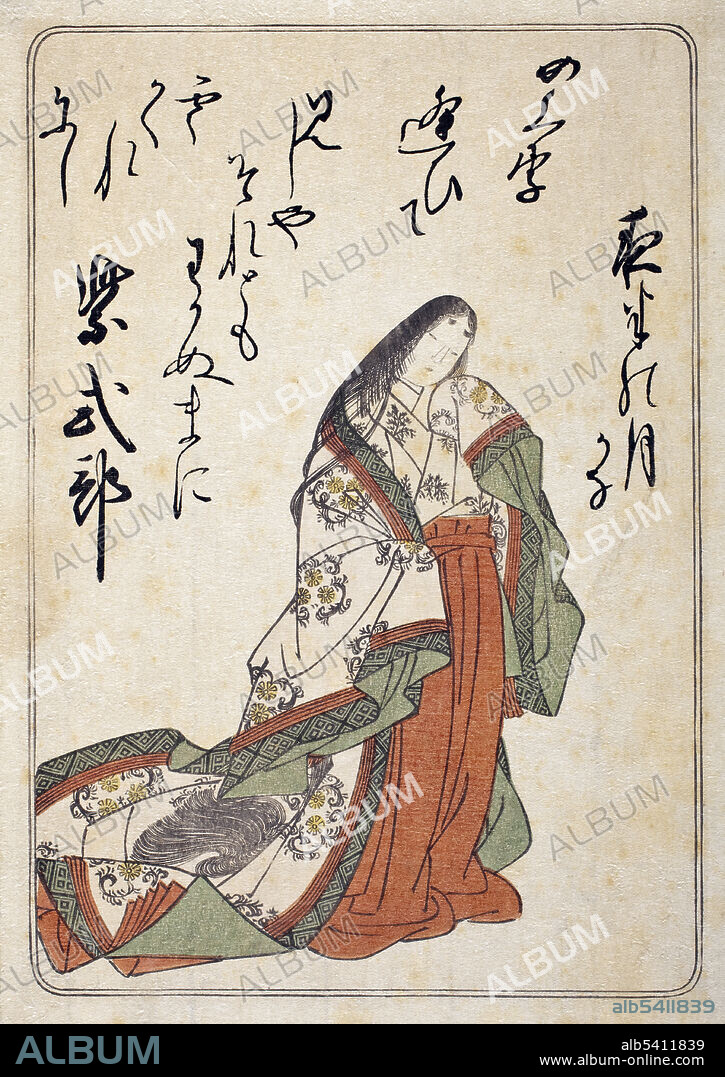 めくり
逢ひて
見しや
それとも
わかぬまに
雲
かく
れ
にし
夜半の月
かな
紫式部
ALBUM
alb5411839
ALBUM
alb5411839
www.album-online.com